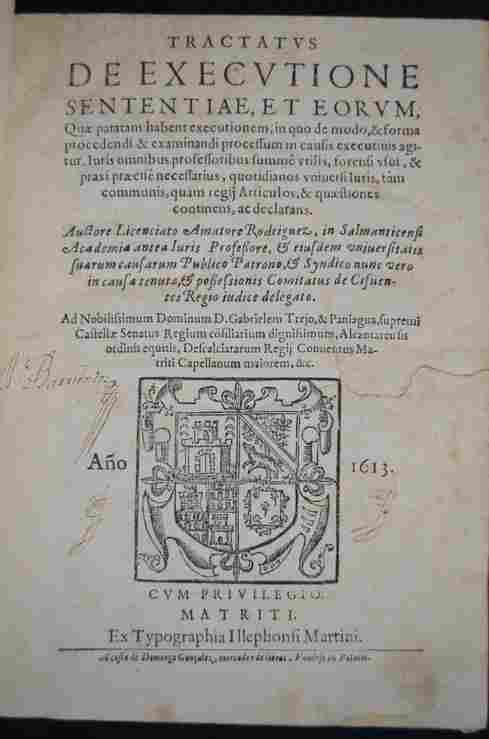 TRACTATVS
DE EXECVTIONE
SENTENTIAE, ET EORVM,
Quæ paratam habent executionem, in quo de modo, & forma
procedendi & examinandi processum in causis executiuis agi-
tur. Iuris omnibus professoribus summè vtilis, forensi vsui, &
praxi præesse necessarius, quotidianos vniuersi Iuris, tàm
communis, quam regij Articulos, & quæstiones
continens, ac declarans.
Auctore Licenciato Amatore Rodriguez, in Salmanticensi
Academia antea Iuris Professore, & eiusdem vniuersitatis
suarum causarum Publico Patrono, & Syndico nunc vero
in causa tenuta, & possessionis Comitatus de Cifuen-
tes Regio iudice delegato.
Ad Nobilissimum Dominum D. Gabrielem Trejo, & Paniagua, supremi
Castellæ Senatus Regium cõsiliarium dignissimum, Alcantarensis
ordinis equitis, Descalciatarum Regij Conuentus Ma-
triti Capellanum maiorem, &c.
Año 1613.
CVM PRIVILEGIO.
MATRITI.
Ex Typographia Illephonsi Martini.
A costa de Domingo Gonçalez, mercader de libros. Vendese en Palacio.